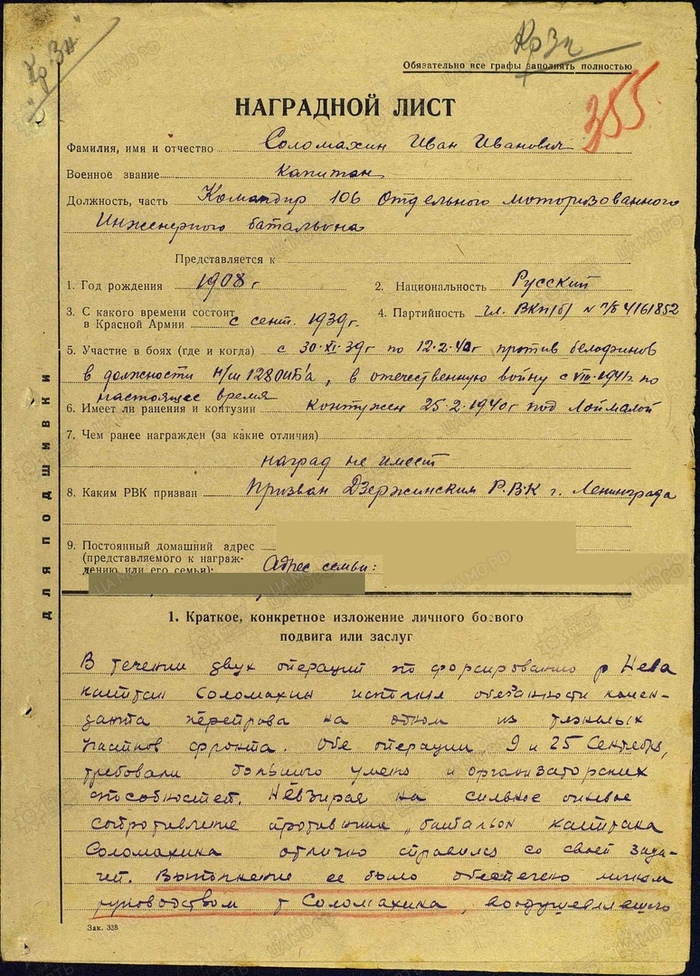 Кр Зн
"Кр. Зн"
Обязательно все графы заполнять полностью
355
НАГРАДНОЙ ЛИСТ
Фамилия, имя и отчество Соломахин Иван Иванович
Военное звание капитан
Должность, часть Командир 106 Отдельного Моторизованного
Инженерного батальона
Представляется к
1. Год рождения 1908 г 2. Национальность Русский
3. С какого времени состоит
в Красной Армии с сент. 1939г. 4. Партийность чл. ВКП(б) № п/б 4161852
5. Участие в боях (где и когда) с 30.XI.39г по 12.2.40г против белофинов
в должности н/ш 128 ОИБ'а, в отечественную войну с VIII-1941г. по
настоящее время
6. Имеет ли ранения и контузии контужен 25.2.1940г под Лоймалой
7. Чем ранее награжден (за какие отличия)
наград не имеет
8. Каким РВК призван Призван Дзержинским Р.В.К г. Ленинграда
9. Постоянный домашний адрес
(представляемого к награж-
дению или его семьи): Адрес семьи:
ДЛЯ ПОДШИВКИ
1. Краткое, конкретное изложение личного боевого
подвига или заслуг
В течении двух операций по форсированию р Нева
капитан Соломахин обязанности комен-
данта переправы на одном из
участков фронта. Обе операции, 9 и 25 Сентября,
требовали большого умено и организаторских
способностей. Невзирая на сильное огневое
сопротивление противника, батальон капитана
Соломахина отлично справился со своей зада-
чей. Выполнение ее было обеспечено личным
руководством т Соломахина, воодушевлявшего
Зак. 328